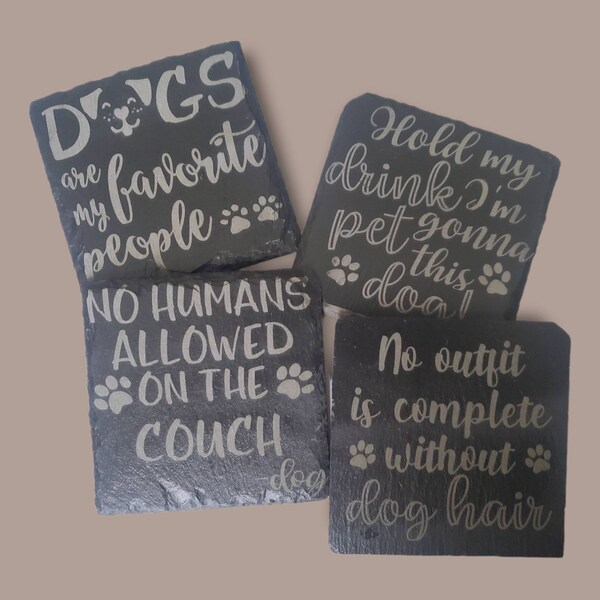 DOGS
are favorite
my
people
Hold my
drink I'm
pet gonna
this
dog!
NO HUMANS
ALLOWED
ON THE
COUCH
-dog
No outfit
is complete
without
dog hair